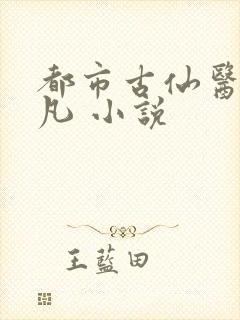 都市古仙醫
凡 小説
王藍田